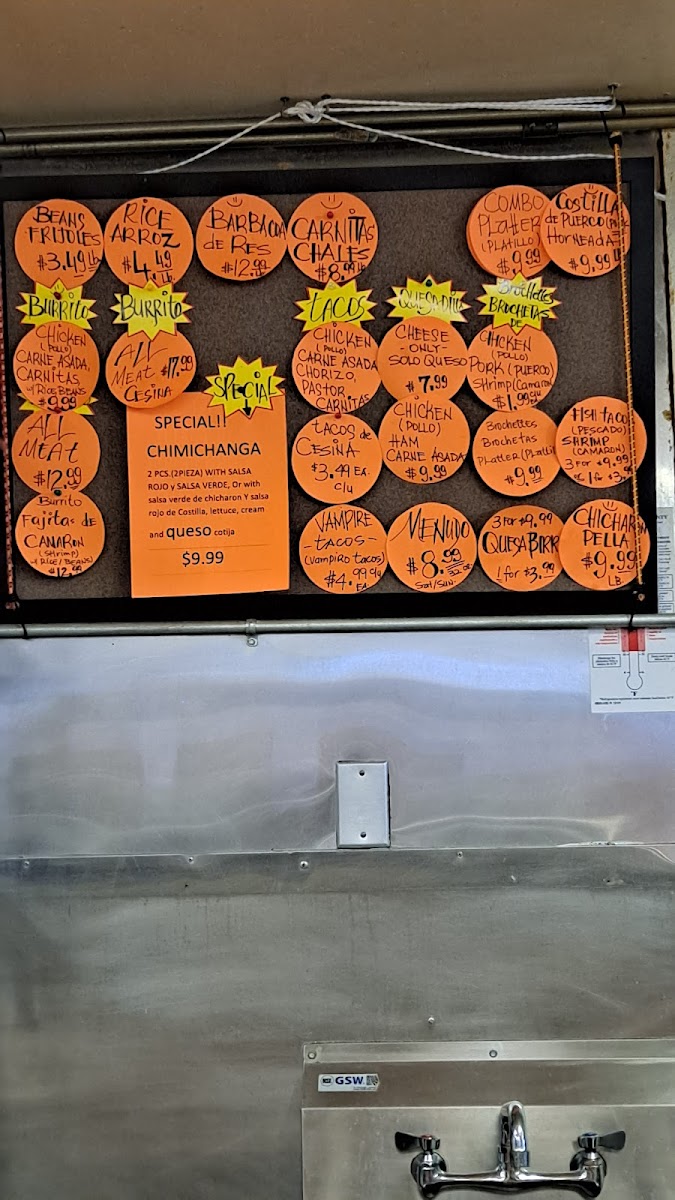 BEANS
FRIJOLES
$3.49 Lb
RICE
ARROZ
$4.49
Lb.
BARBACOA
de RES
$12.99
CARNITAS
CHALES
$8.99 Lb
COMBO
PLATTER
(PLATILLO)
$9.99
COSTILLA
DE PUERCO
HORNEADA
$9.99 Lb
BURRITO
CHICKEN
(POLLO)
CARNE ASADA,
CARNITAS,
w/ RICE BEANS
$9.99
BURRITO
ALL
MEAT $17.99
CESINA
TACOS
CHICKEN
(POLLO)
CARNE ASADA
CHORIZO,
PASTOR,
CARNITAS
CHEESE
-ONLY-
SOLO QUESO
$7.99
Brochettes
BROCHETAS
DE
CHICKEN
(POLLO)
PORK (PUERCO)
SHRIMP (CAMARON
$1.99 c/u
ALL
MEAT
$12.99
SPECIAL
SPECIAL!!
CHIMICHANGA
2 PCS.(2PIEZA) WITH SALSA
ROJO y SALSA VERDE, Or with
salsa verde de chicharon Y salsa
rojo de Costilla, lettuce, cream
and queso cotija
$9.99
TACOS de
CESINA
$3.49 EA.
c/u
CHICKEN
(POLLO)
HAM
CARNE ASADA
$9.99
Brochettes
Brochetas
PLATTER
$9.99
FISH TACO
(PESCADO)
SHRIMP
(CAMARON)
3 FOR $9.99
Burrito
FAJITAS DE
CAMARON
(Shrimp)
w/ RICE/BEANS
VAMPIRE
-TACOS-
(Vampiro tacos)
$4.99 c/u
EA
MENUDO
$8.99
32 oz
Sat/Sun.
3 FOR $9.99
QUESABIRR
1 for $3.99
CHICHAR
PELLA
$9.99
LB
GSW